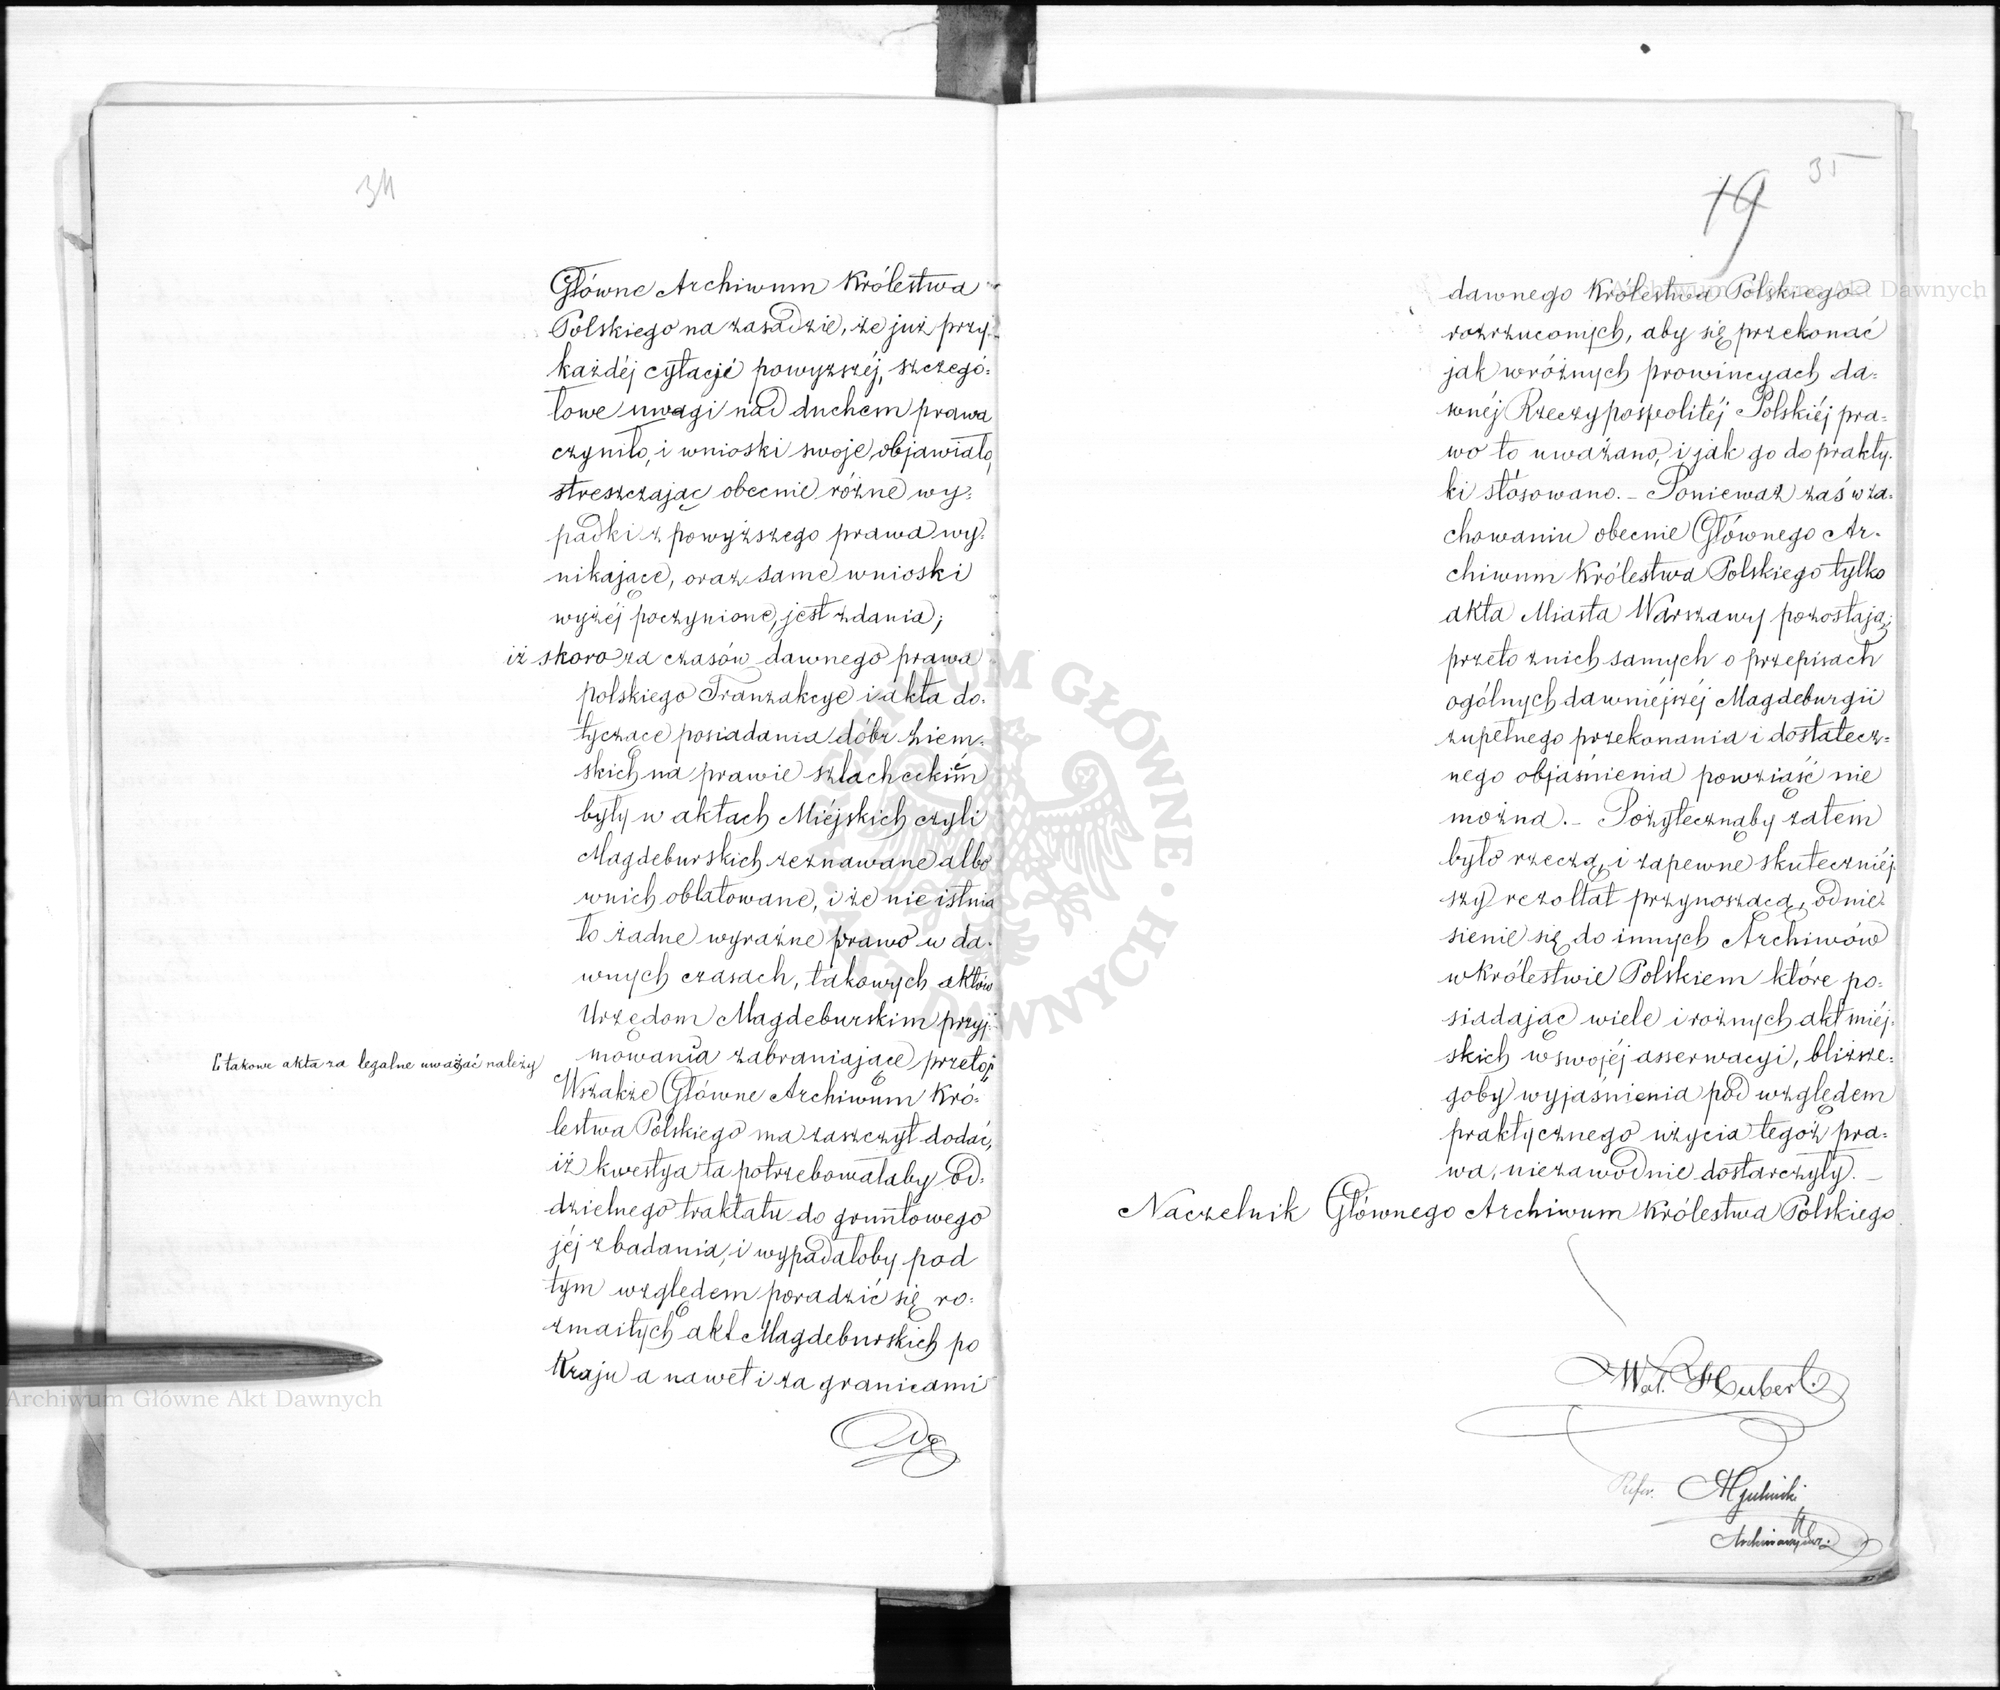 34
Główne Archiwum Królestwa
Polskiego na zasadzie, że już przy
każdéj cytacjé powyzszéj, szczegó:
łowe uwagi nad duchem prawa
czyniło, i wnioski swoje objawiało,
streszczając obecnie różne wy:
padki z powyższego prawa wy:
nikające, oraz same wnioski
wyżéj poczynione, jest zdania;
iż skoro za czasów dawnego prawa
polskiego Tranzakcye i akta do:
tyczące posiadania dóbr ziem:
skich na prawie szlacheckim
były w aktach Miéjskich czyli
Magdeburskich zeznawane albo
wnich oblatowane, i że nie istnia
ło żadne wyraźne prawo w da:
wnych czasach, takowych aktów
Urzędom Magdeburskim przyj:
mowania zabraniające przeto
takowe akta za legalne uważać należy
Wszakże Główne Archiwum Kró:
lestwa Polskiego ma zaszczyt dodać,
iż kwestya ta potrzebowałaby od:
dzielnego traktatu do gruntowego
jéj zbadania, i wypadałoby pod
tym względem poradzić się ro:
zmaitych akt Magdeburskich po
Kraju a nawet i za granicami
35
19
dawnego Królestwa Polskiego
rozrzuconych, aby się przekonać
jak wróżnych prowincyach da:
wnéj Rzeczypospolitéj Polskiéj pra:
wo to uważano, i jak go do prakty:
ki stósowano. – Ponieważ zaś w za:
chowaniu obecnie Głównego Ar:
chiwum Królestwa Polskiego tylko
akta Miasta Warszawy pozostają;
przeto znich samych o przepisach
ogólnych dawniéjszéj Magdeburgii
zupełnego przekonania i dostatecz:
nego objaśnienia powziąść nie
można. – Pożytecznąby zatem
było rzeczą, i zapewne skuteczniéj
szy rezoltat przynoszącą, odnie
sienie się do innych Archiwów
w Królestwie Polskiem które po:
siadając wiele i rożnych akt miéj:
skich w swojéj asserwacyi, bliższe:
goby wyjaśnienia pod względem
praktycznego użycia tegoż pra:
wa, niezawodnie dostarczyły. –
Naczelnik Głównego Archiwum Królestwa Polskiego
Wal. Hubert.
Refer.
Archiwum Główne Akt Dawnych
Archiwum Główne Akt Dawnych
ARCHIWUM GŁÓWNE AKT DAWNYCH